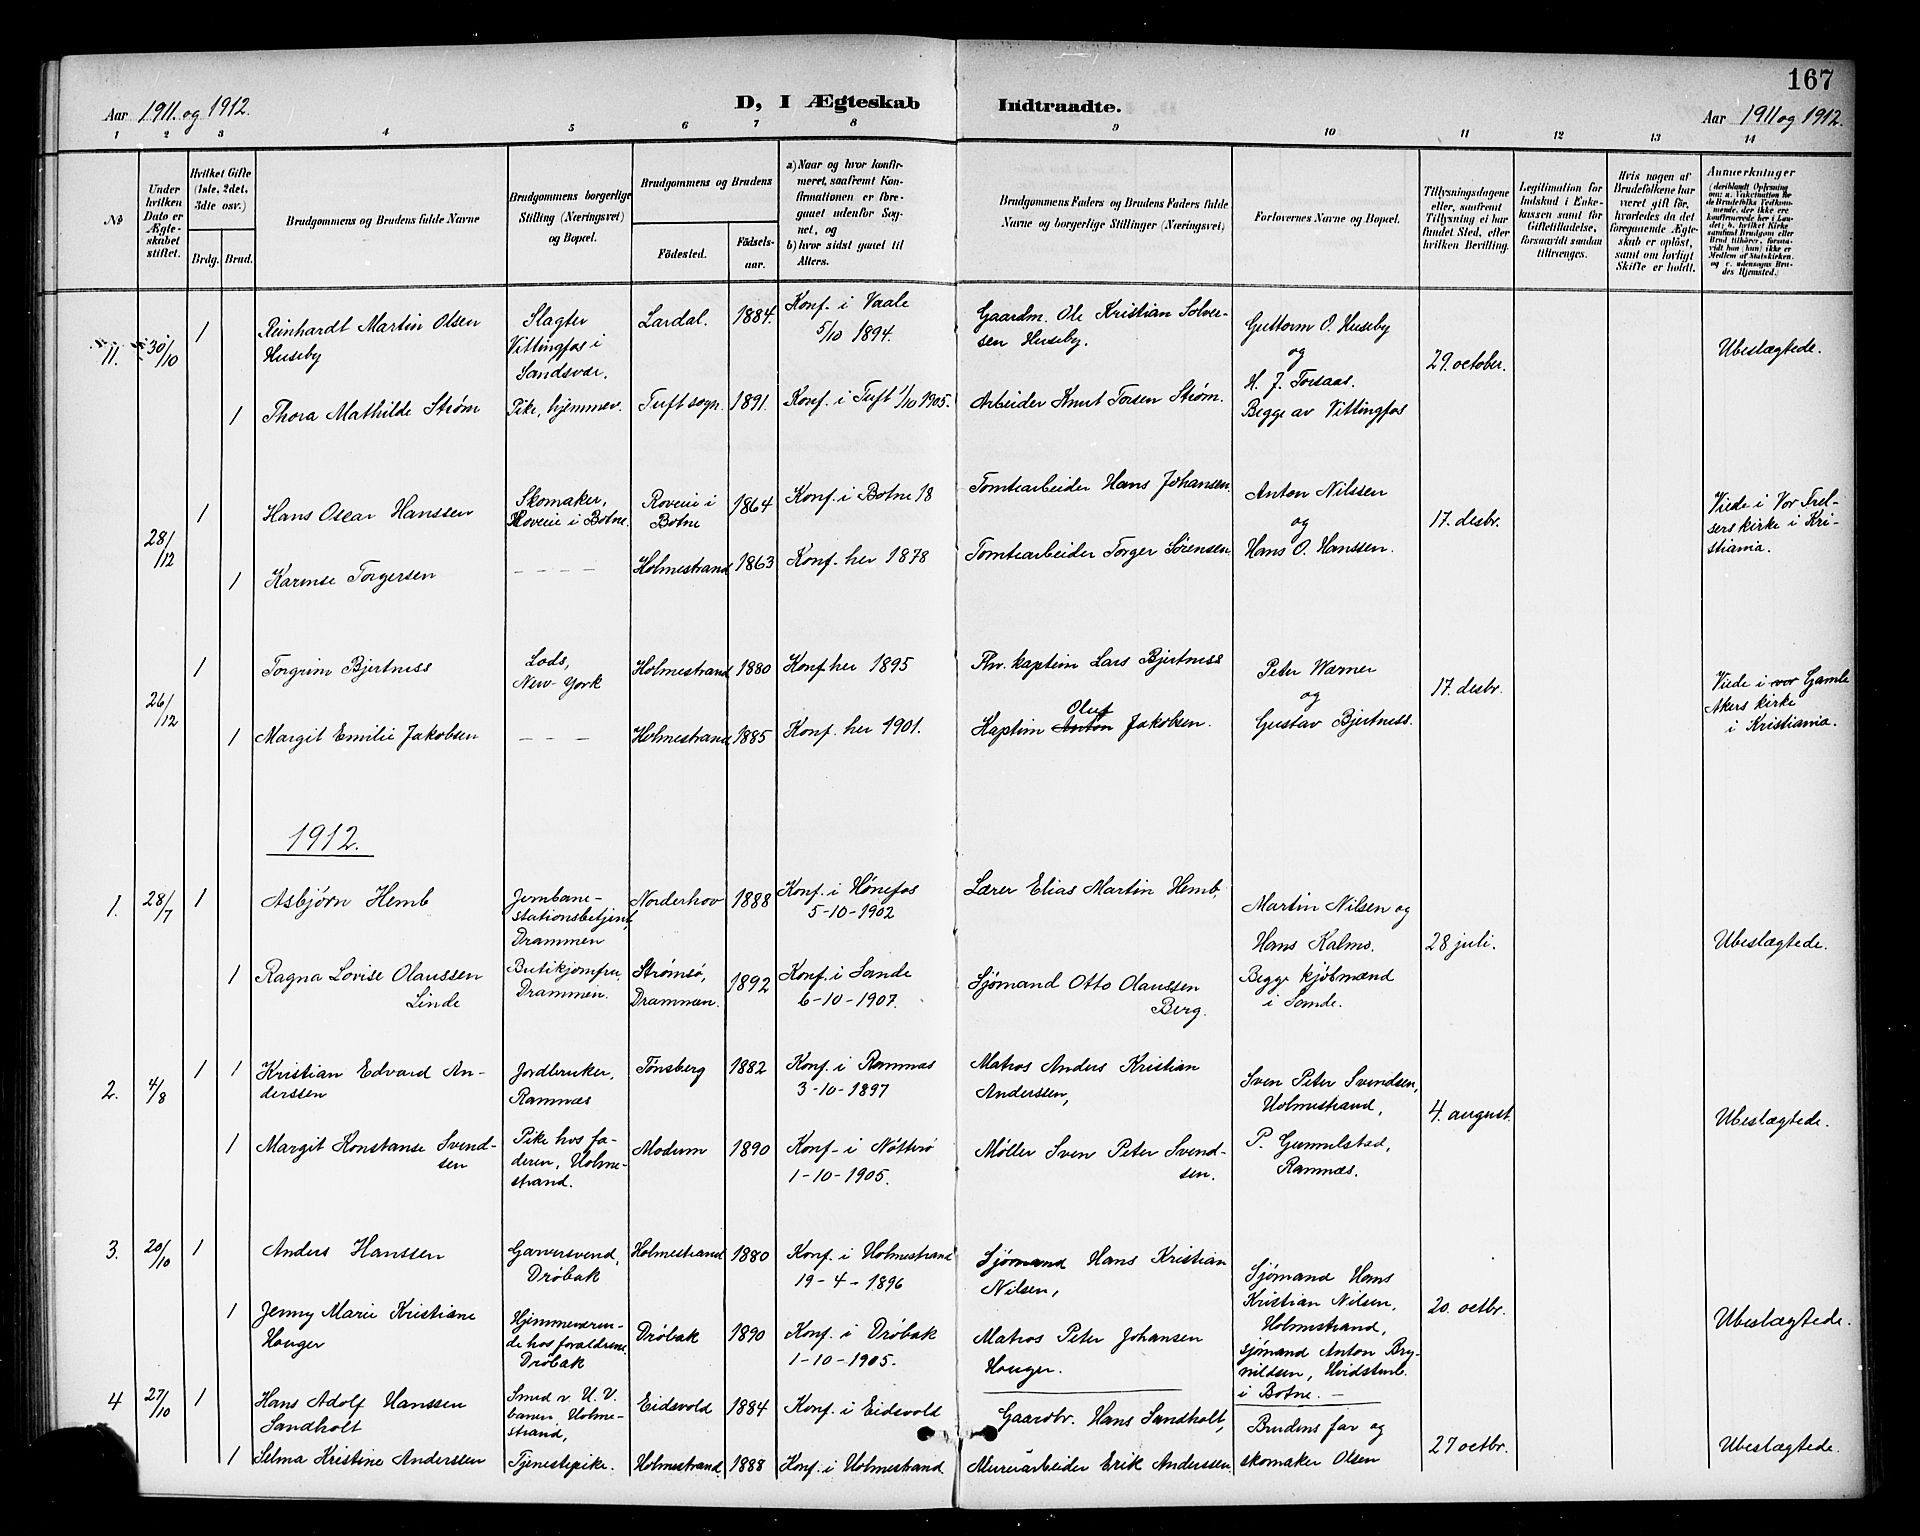 167
Aar 1911. og 1912.
D, I Ægteskab Indtraadte.
Aar 1911 og 1912.
1 2 3 4 5 6 7 8 9 10 11 12 13 14
No
Under hvilken Dato er Ægteskabet stiftet.
Hvilket Gifte (1ste, 2det, 3die osv.)
Brdg. Brud.
Brudgommens og Brudens fulde Navne
Brudgommens borgerlige Stilling (Næringsvei) og Bopæl.
Brudgommens og Brudens
Födested.
Födselsaar.
a) Naar og hvor konfirmeret, saafremt Konfirmationen er foregaaet udenfor Sognet, og
b) hvor sidst gaaet til Alters.
Brudgommens Faders og Brudens Faders fulde Navne og borgerlige Stillinger (Næringsvei)
Forlovernes Navne og Bopæl.
Tillysningsdagene eller, saafremt Tillysning ei har fundet Sted, efter hvilken Bevilling.
Legitimation for Indskud i Enkekassen samt for Giftetilladelse, forsaavidt saadan tiltrænges.
Hvis nogen af Brudefolkene har været gift för, hvorledes da det foregaaende Ægteskab er oplöst, samt om lovligt Skifte er holdt.
Anmærkninger
11. 30/10 1 Reinhardt Martin Olsen Huseby
Slagter Vittingfos i Sandsvær.
Lardal. 1884. Konf. i Vaale 5/10 1894.
Gaardm. Ole Kristian Solversen Huseby.
Guttorm O. Huseby og H. J. Torsaas. Begge av Vittingfos
29. october.
Ubeslægtede.
1 Thora Mathilde Strøm
Pike, hjemmev. Tuft sogn. 1891. Konf. i Tuft 1/10 1905.
Arbeider Knut Torsen Strøm.
28/12 1 Hans Oscar Hanssen
Skomaker, Roveie i Botne.
Roveie i Botne 1864 Konf. i Botne 18
Tomtearbeider Hans Johansen.
Anton Nilssen og Hans O. Hanssen.
17. desbr.
Viede i Vor Frelsers kirke i Kristiania.
1 Karense Torgersen
- - - - Holmestrand 1863 Konf. her 1878
Tomtearbeider Torger Sørensen
26/12 1 Torgrim Bjertness
Lods, New-York
Holmestrand 1880 Konf. her 1895
Fhv. kaptein Lars Bjertness
Peter Wærner og Gustav Bjertness.
17. desbr.
Viede i vor Gamle Akers kirke i Kristiania.
1 Margit Emilie Jakobsen
- - - Holmestrand 1885 Konf. her 1901.
Kaptein Anton Oluf Jakobsen.
1912.
1. 28/7 1 Asbjørn Hemb
Jernbanestationsbetjent, Drammen
Norderhov 1888 Konf. i Hønefos 5-10-1902
Lærer Elias Martin Hemb,
Martin Nilsen og Hans Kalmo. Begge kjøbmænd i Sande.
28 juli.
Ubeslægtede.
1 Ragna Lovise Olaussen Linde
Butikjomfru, Drammen.
Strømsö, Drammen. 1892 Konf. i Sande 6-10-1907.
Sjømand Otto Olaussen Berg.
2. 4/8 1 1 Kristian Edvard Anderssen
Jordbruker, Ramnæs
Tønsberg 1882 Konf. i Ramnæs 3-10-1897
Matros Anders Kristian Anderssen,
Sven Peter Svendsen, Holmestrand, P. Gunnelstad, Ramnæs.
4. august.
Ubeslægtede.
1 Margit Konstanse Svendsen
Pike hos faderen, Holmestrand.
Modum 1890 Konf. i Nötterö 1-10-1905.
Møller Sven Peter Svendsen.
3. 20/10 1 Anders Hanssen
Garversvend, Dröbak
Holmestrand 1880 Konf. i Holmestrand 19-4-1896
Sjømand Hans Kristian Nilsen,
Sjømand Hans Kristian Nilsen, Holmestrand, sjømand Anton Brynildsen, Hvidstenb. i Botne. -
20. octbr.
Ubeslægtede.
1 Jenny Marie Kristiane Houger
Hjemmeværende hos forældrene. Dröbak
Dröbak 1890 Konf. i Dröbak 1-10-1905.
Matros Peter Johansen Houger.
4 27/10 1 Hans Adolf Hanssen Sandholt
Smed v. H. V. banen, Holmestrand,
Eidsvold 1884 Konf. i Eidsvold
Gaardbr. Hans Sandholt,
Brudens far og skomaker Olsen
27 octbr.
Ubeslægtede.
1 Selma Kristine Anderssen
Tjenestepike. Holmestrand. 1888 Konf. i Holmestrand.
Murerarbeider Erik Anderssen.